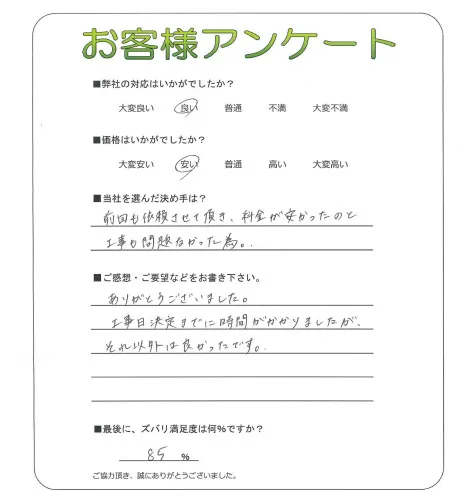 お客様アンケート
■弊社の対応はいかがでしたか？
大変良い 良い 普通 不満 大変不満
■価格はいかがでしたか？
大変安い 安い 普通 高い 大変高い
■当社を選んだ決め手は？
前回も依頼させて頂き、料金が安かったのと
工事も問題なかった為。
■ご感想・ご要望などをお書き下さい。
ありがとうございました。
工事日決定までに時間がかかりましたが、
それ以外は良かったです。
■最後に、ズバリ満足度は何％ですか？
85 %
ご協力頂き、誠にありがとうございました。